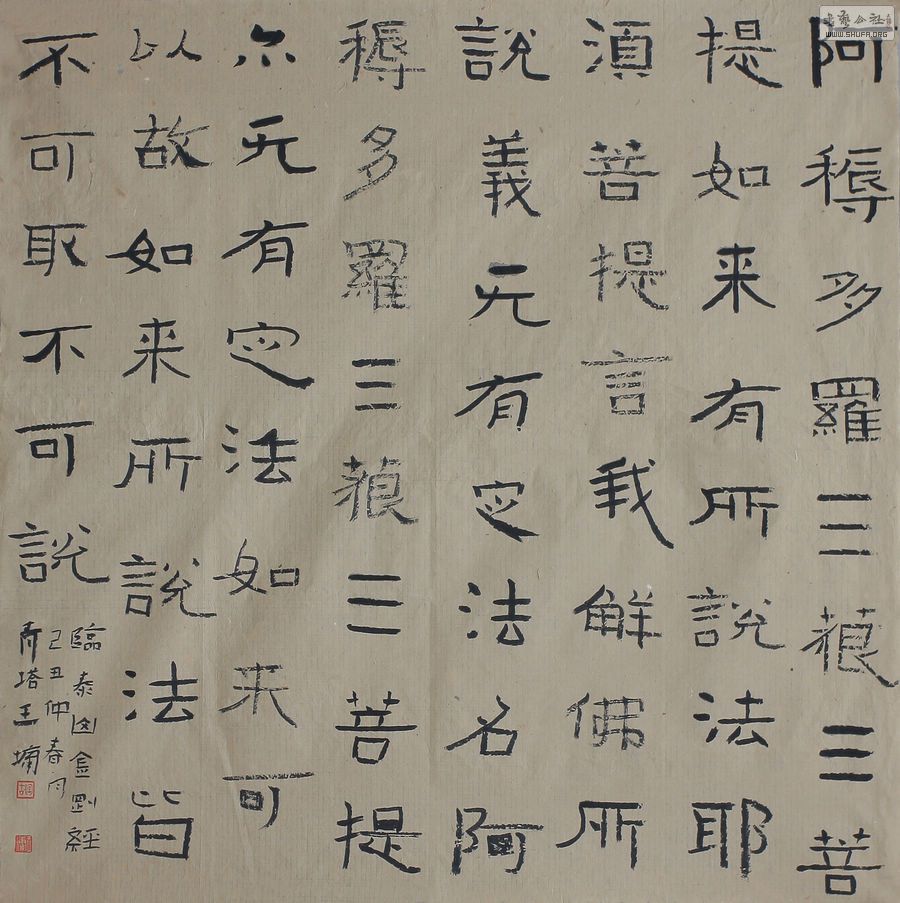 阿耨多羅三藐三菩
提如来有所說法耶
須菩提言我解佛所
說義无有定法名阿
耨多羅三藐三菩提
亦无有定法如来可
以故如来所說法皆
不可取不可說
臨泰山金剛經
己丑仲春月
青塔王墉
书艺公社
WWW.SHUFA.ORG